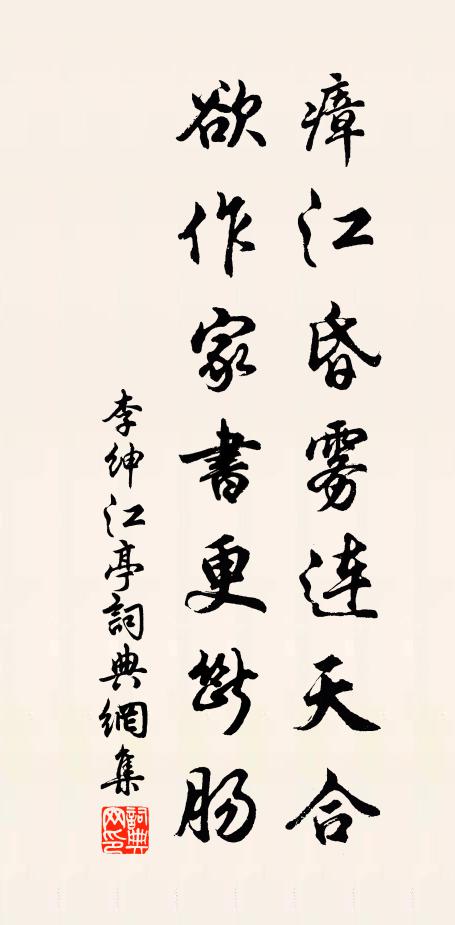 瘴江昏雾连天合
欲作家書更断肠
李绅江亭詞典網集
詞典网印